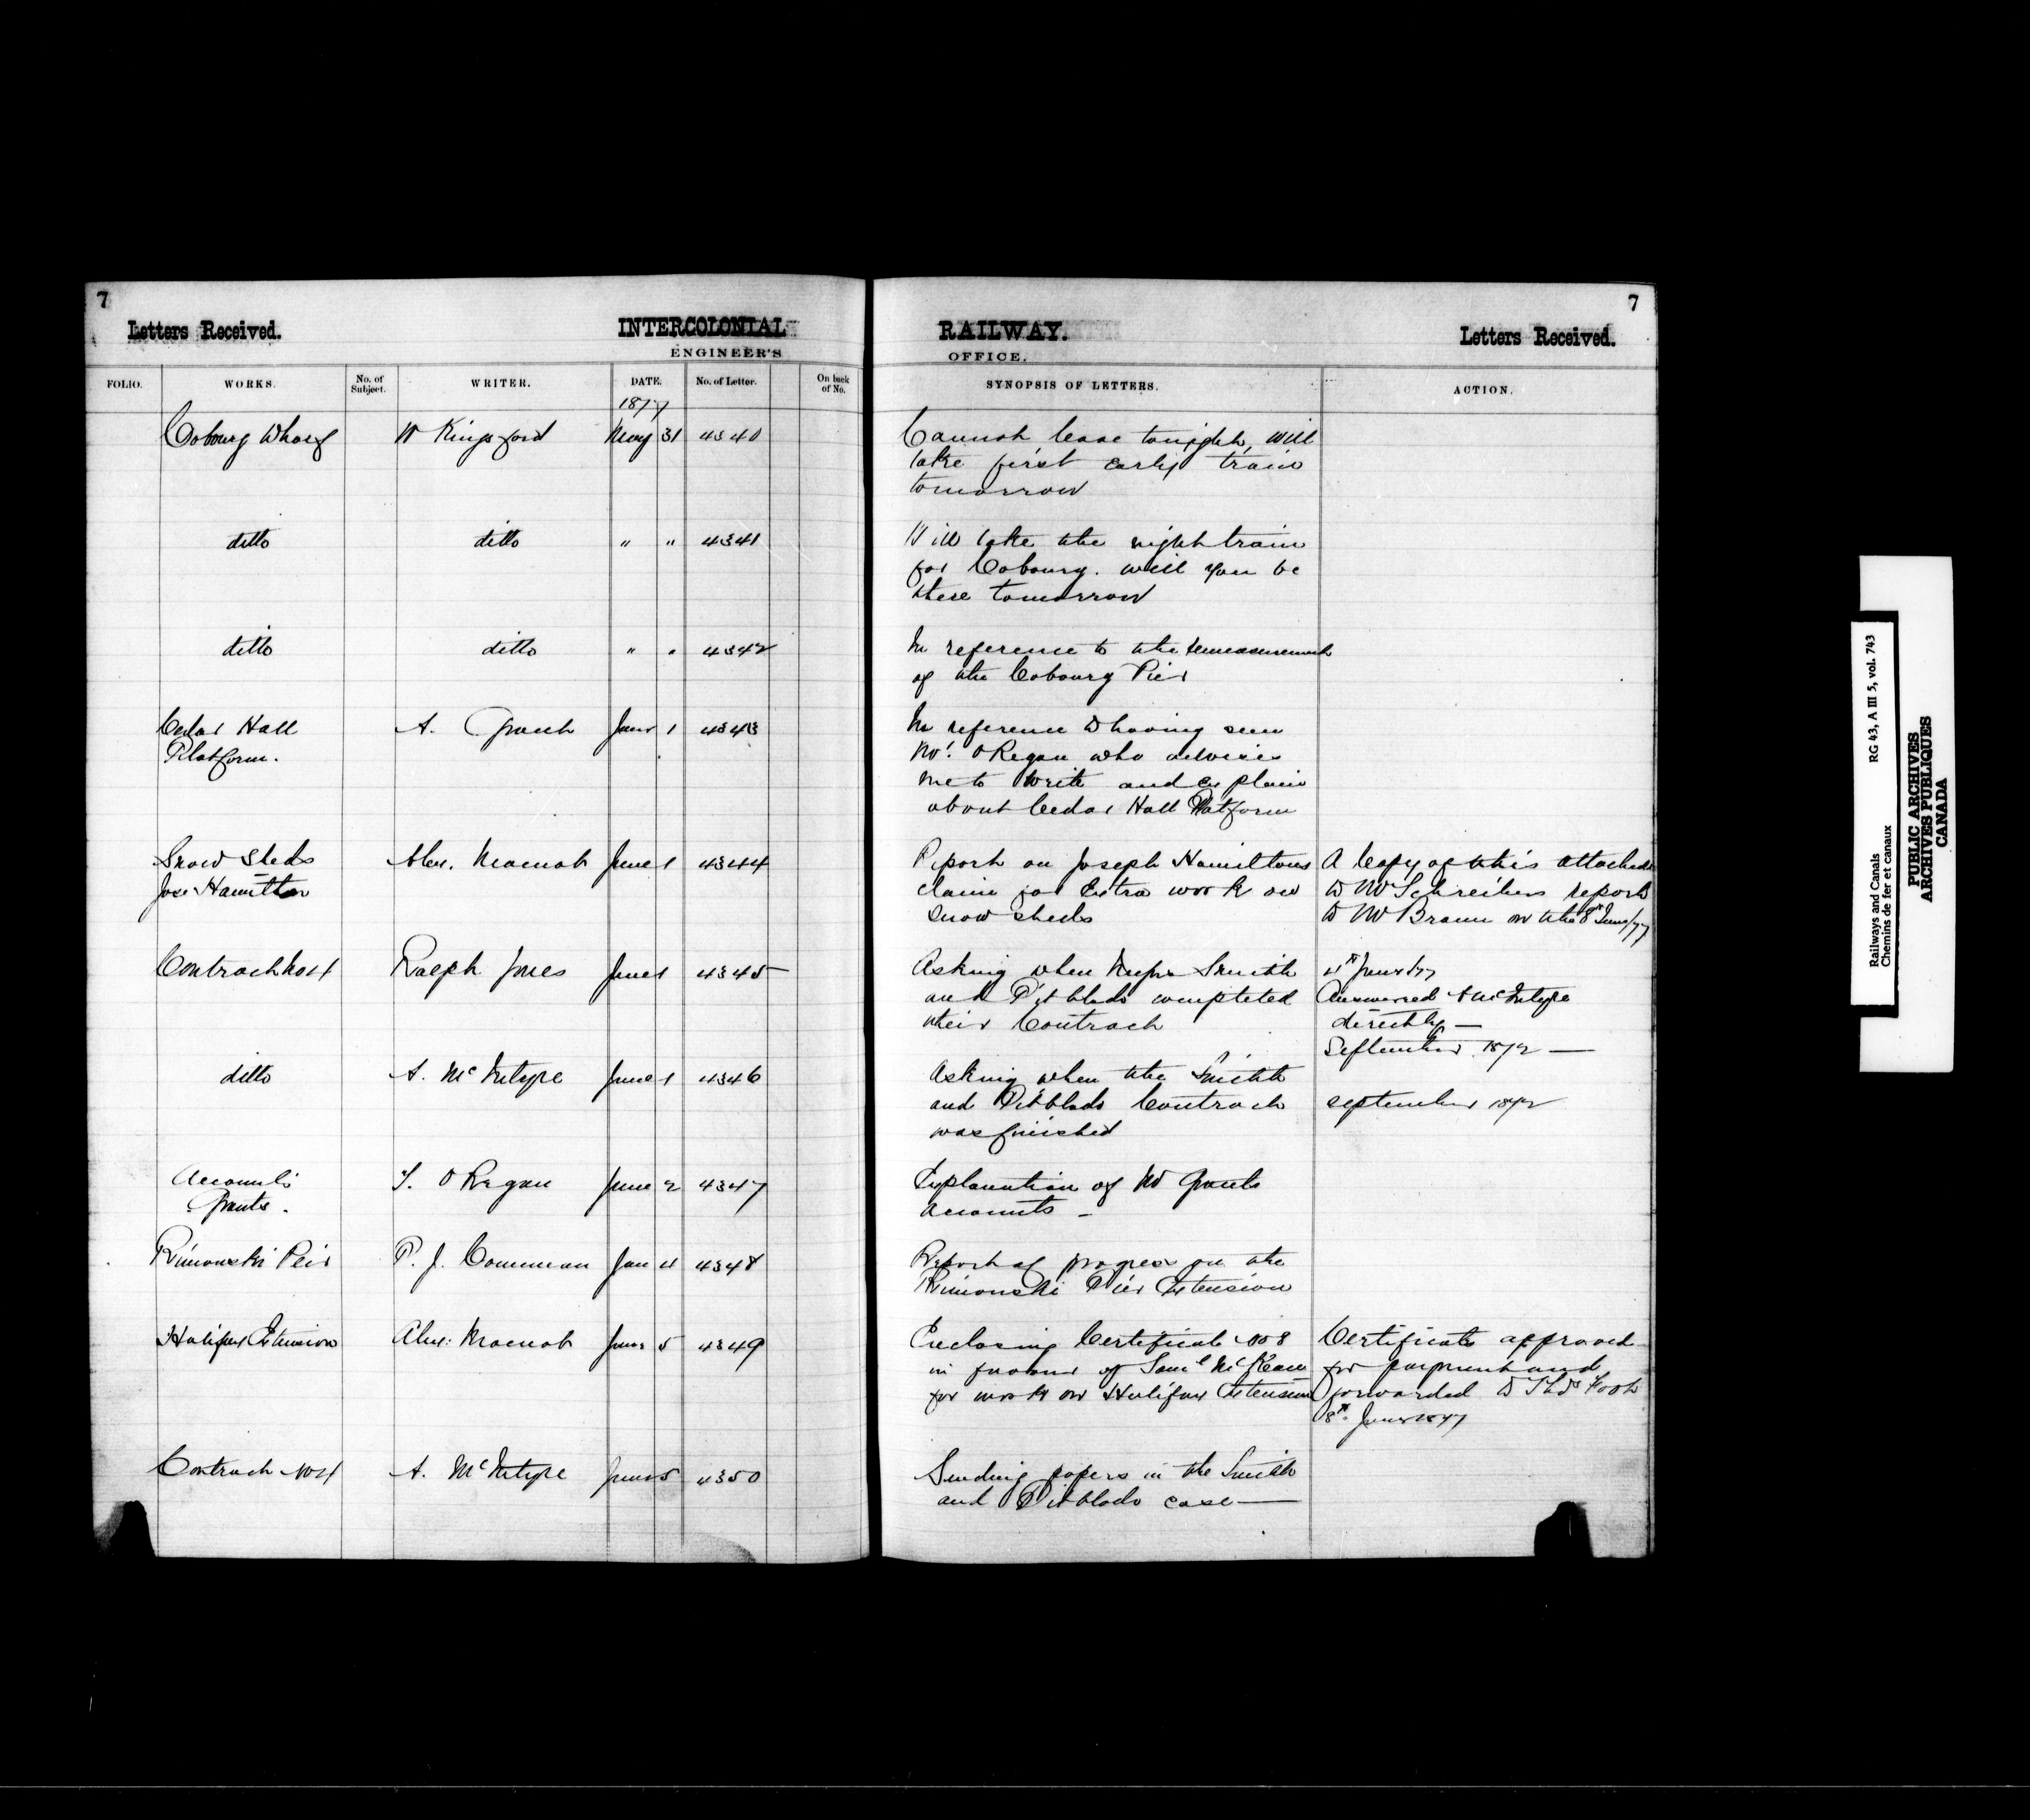 7
7
Letters Received.
INTERCOLONIAL
RAILWAY.
Letters Received.
ENGINEER'S
OFFICE.
FOLIO. WORKS. No. of Subject. WRITER. DATE. No. of Letter. On back of No. SYNOPSIS OF LETTERS. ACTION.
1877
Cobourg Wharf W Kingsford May 31 4340 Cannot leave tonight, will
take first early train
tomorrow
ditto ditto " " 4341 Will take the night train
for Cobourg. Will you be
there tomorrow
ditto ditto " " 4342 In reference to the remeasurement
of the Cobourg Pier
Cedar Hall A. Grant June 1 4343 In reference to having seen
Platform. Mr. O Regan who advises
me to write and explain
about Cedar Hall Platform
Snow Sheds Alex. Macnab June 1 4344 Report on Joseph Hamiltons A Copy of this attached
Jos. Hamilton claim for Extra work on to Mr Schreibers report
Snow sheds to Mr Braun on the 8th June/77
Contract No 4 Ralph Jones June 1 4345 Asking when Messrs Smith 4th June /77
and Pitblado completed Answered A McIntyre
their Contract directly —
September 1872 —
ditto A. McIntyre June 1 4346 Asking when the Smith
and Pitblado Contract September 1872
was finished
Accounts T. O Regan June 2 4347 Explanation of Mr Grants
Grants. accounts –
Rimouski Peir P. J. June 4 4348 Report of progress on the
Rimouski Pier Extension
Halifax Extension Alex: Macnab June 5 4349 Enclosing Certificate No 8 Certificate approved
in favour of Saml McKean for payment and
for work on Halifax Extension forwarded to Thos Foot
8th June 1877
Contract No 4 A. McIntyre June 5 4350 Sending papers in the Smith
and Pitblado case —
Railways and Canals RG 43, A III 5, vol. 743
Chemins de fer et canaux
PUBLIC ARCHIVES
ARCHIVES PUBLIQUES
CANADA